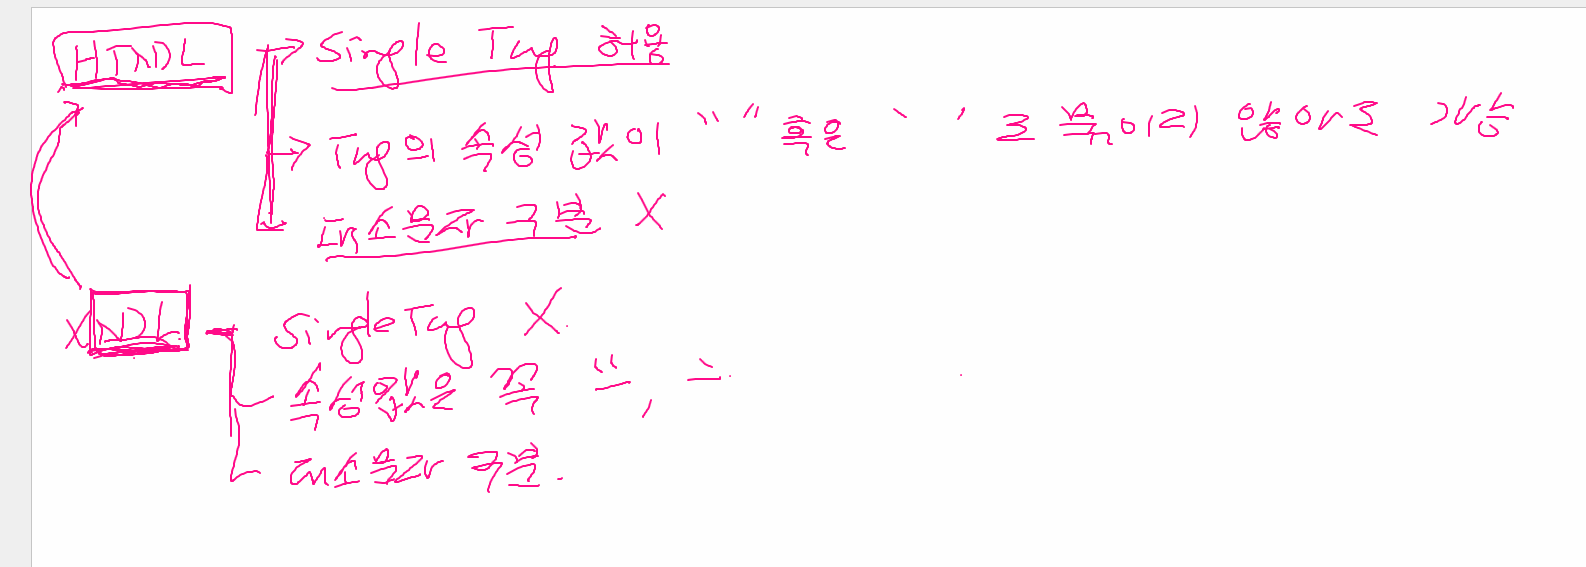 HTML Single Tag 허용
Tag의 속성 값이 " " 혹은 ' ' 로 묶이지 않아도 가능
대소문자 구분 X
XML Single Tag X.
속성값은 꼭 " , ' .
대소문자 구분.